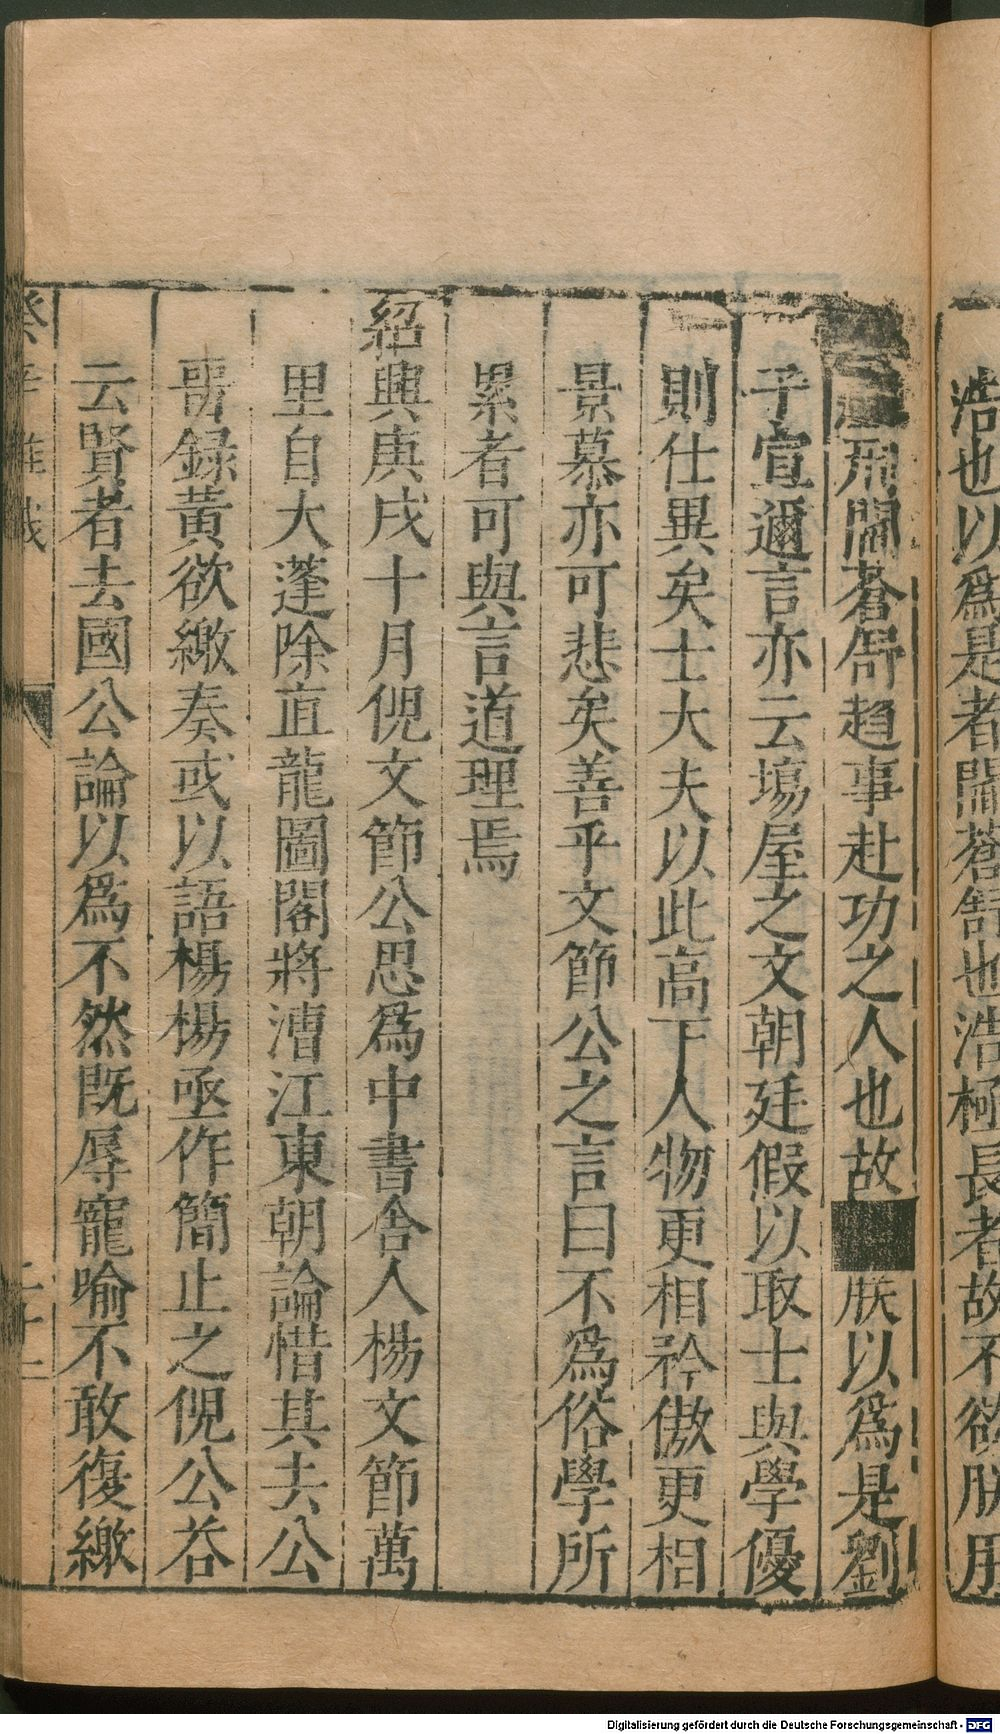 浩也以爲是者闢蒼舒也浩極長者故不欲朕用
刑闢蒼舒趋事赴功之人也故朕以爲是劉
子宣邇言亦云塲屋之文朝廷假以取士與學優
則仕異矣士大夫以此高下人物更相矜傲更相
景慕亦可悲矣善乎文節公之言曰不爲俗學所
累者可與言道理焉
紹興庚戌十月倪文節公思爲中書舍人楊文節萬
里自大蓬除直龍圖閣將漕江東朝論惜其去公
㖃錄黃欲繳奏或以語楊楊亟作簡止之倪公荅
云賢者去國公論以爲不然既辱寵喻不敢復繳
癸辛雜識
Digitalisierung gefördert durch die Deutsche Forschungsgemeinschaft - DFG